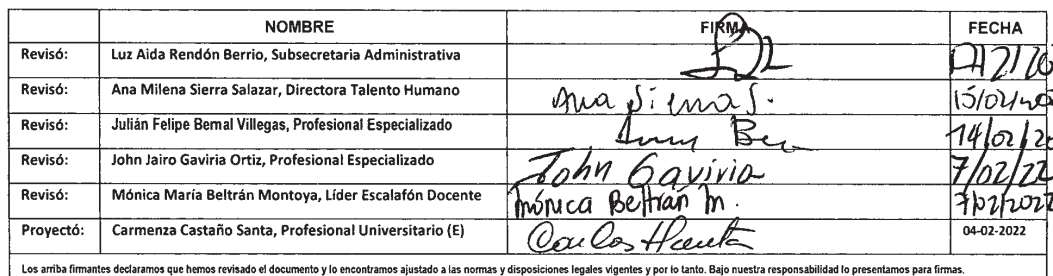 NOMBRE FIRMA FECHA
Revisó: Luz Aida Rendón Berrio, Subsecretaria Administrativa
Revisó: Ana Milena Sierra Salazar, Directora Talento Humano Ana Sierra S. 15/02/
Revisó: Julián Felipe Bernal Villegas, Profesional Especializado 14/02/20
Revisó: John Jairo Gaviria Ortiz, Profesional Especializado John Gaviria 7/02/22
Revisó: Mónica María Beltrán Montoya, Líder Escalafón Docente Mónica Beltrán M. 7/02/2022
Proyectó: Carmenza Castaño Santa, Profesional Universitario (E) 04-02-2022
Los arriba firmantes declaramos que hemos revisado el documento y lo encontramos ajustado a las normas y disposiciones legales vigentes y por lo tanto. Bajo nuestra responsabilidad lo presentamos para firmas.